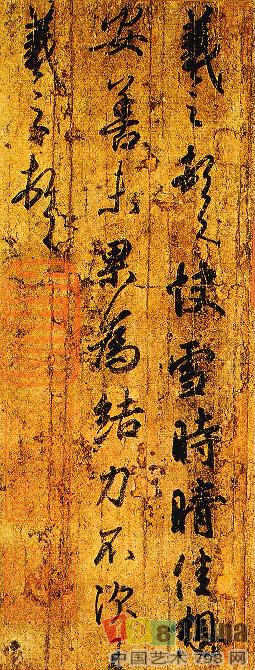 羲之頓首快雪時晴佳想
安善未果為結力不次
羲之頓首
中国艺术798网